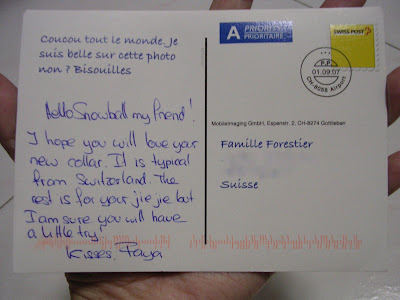 Coucou tout le monde. Je
suis belle sur cette photo
non ? Bisouilles
Hello Snowball my friend!
I hope you will love your
new collar. It is typical
from Switzerland. The
rest is for your jie jie but
I am sure you will have
a little try.
Kisses, Paya
A PRIORITY
PRIORITAIRE
SWISS POST
P.P.
01.09.07
CH-8058 Airport
MobileImaging GmbH, Espenstr. 2, CH-8274 Gottlieben
Famille Forestier
Suisse